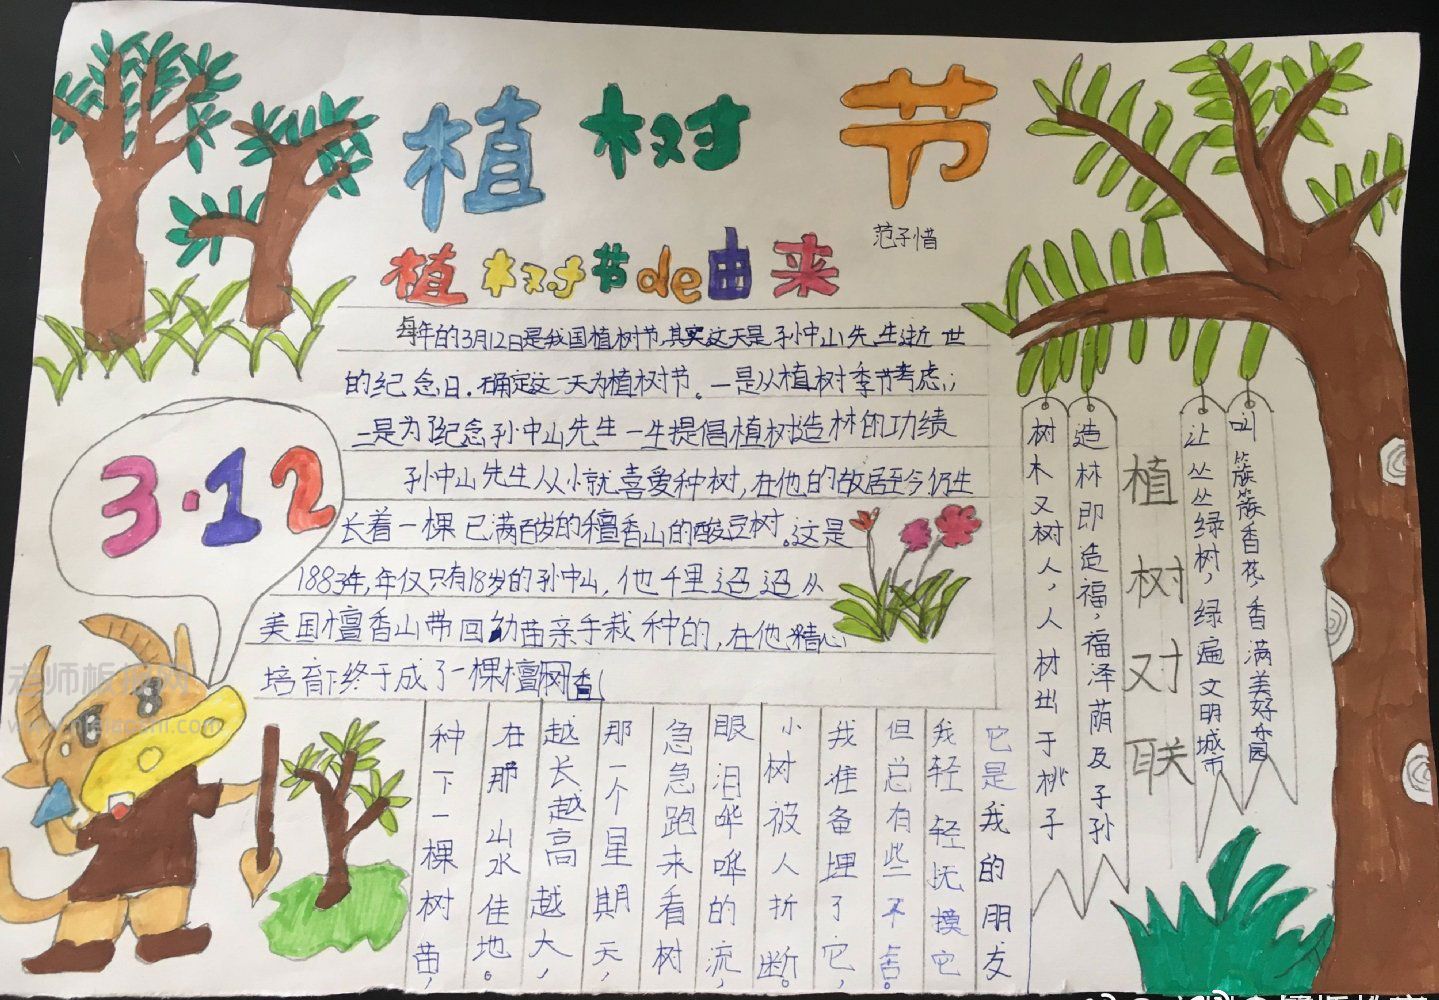 植树节
范子惜
植树节de由来
每年的3月12日是我国植树节,其实这天是孙中山先生逝世
的纪念日.确定这一天为植树节。一是从植树季节考虑;
二是为了纪念孙中山先生一生提倡植树造林的功绩
孙中山先生从小就喜爱种树,在他的故居至今仍生
长着一棵已满百岁的檀香山的酸豆树。这是
1883年,年仅只有18岁的孙中山,他千里迢迢从
美国檀香山带回幼苗亲手栽种的,在他精心
培育下终于成了一棵檀树香
3·12
种下一棵树苗,
在那山水佳地。
越长越高越大,
那一个星期天,
急急跑来看树
眼泪哗哗的流,
小树被人折断。
我准备埋了它,
但总有些不舍。
我轻轻抚摸它
它是我的朋友
树木又树人,人材出于桃子
造林即造福,福泽荫及子孙
植树对联
让丛丛绿树,绿遍文明城市
叫簇簇香花,香满美好乐园
老师板报网